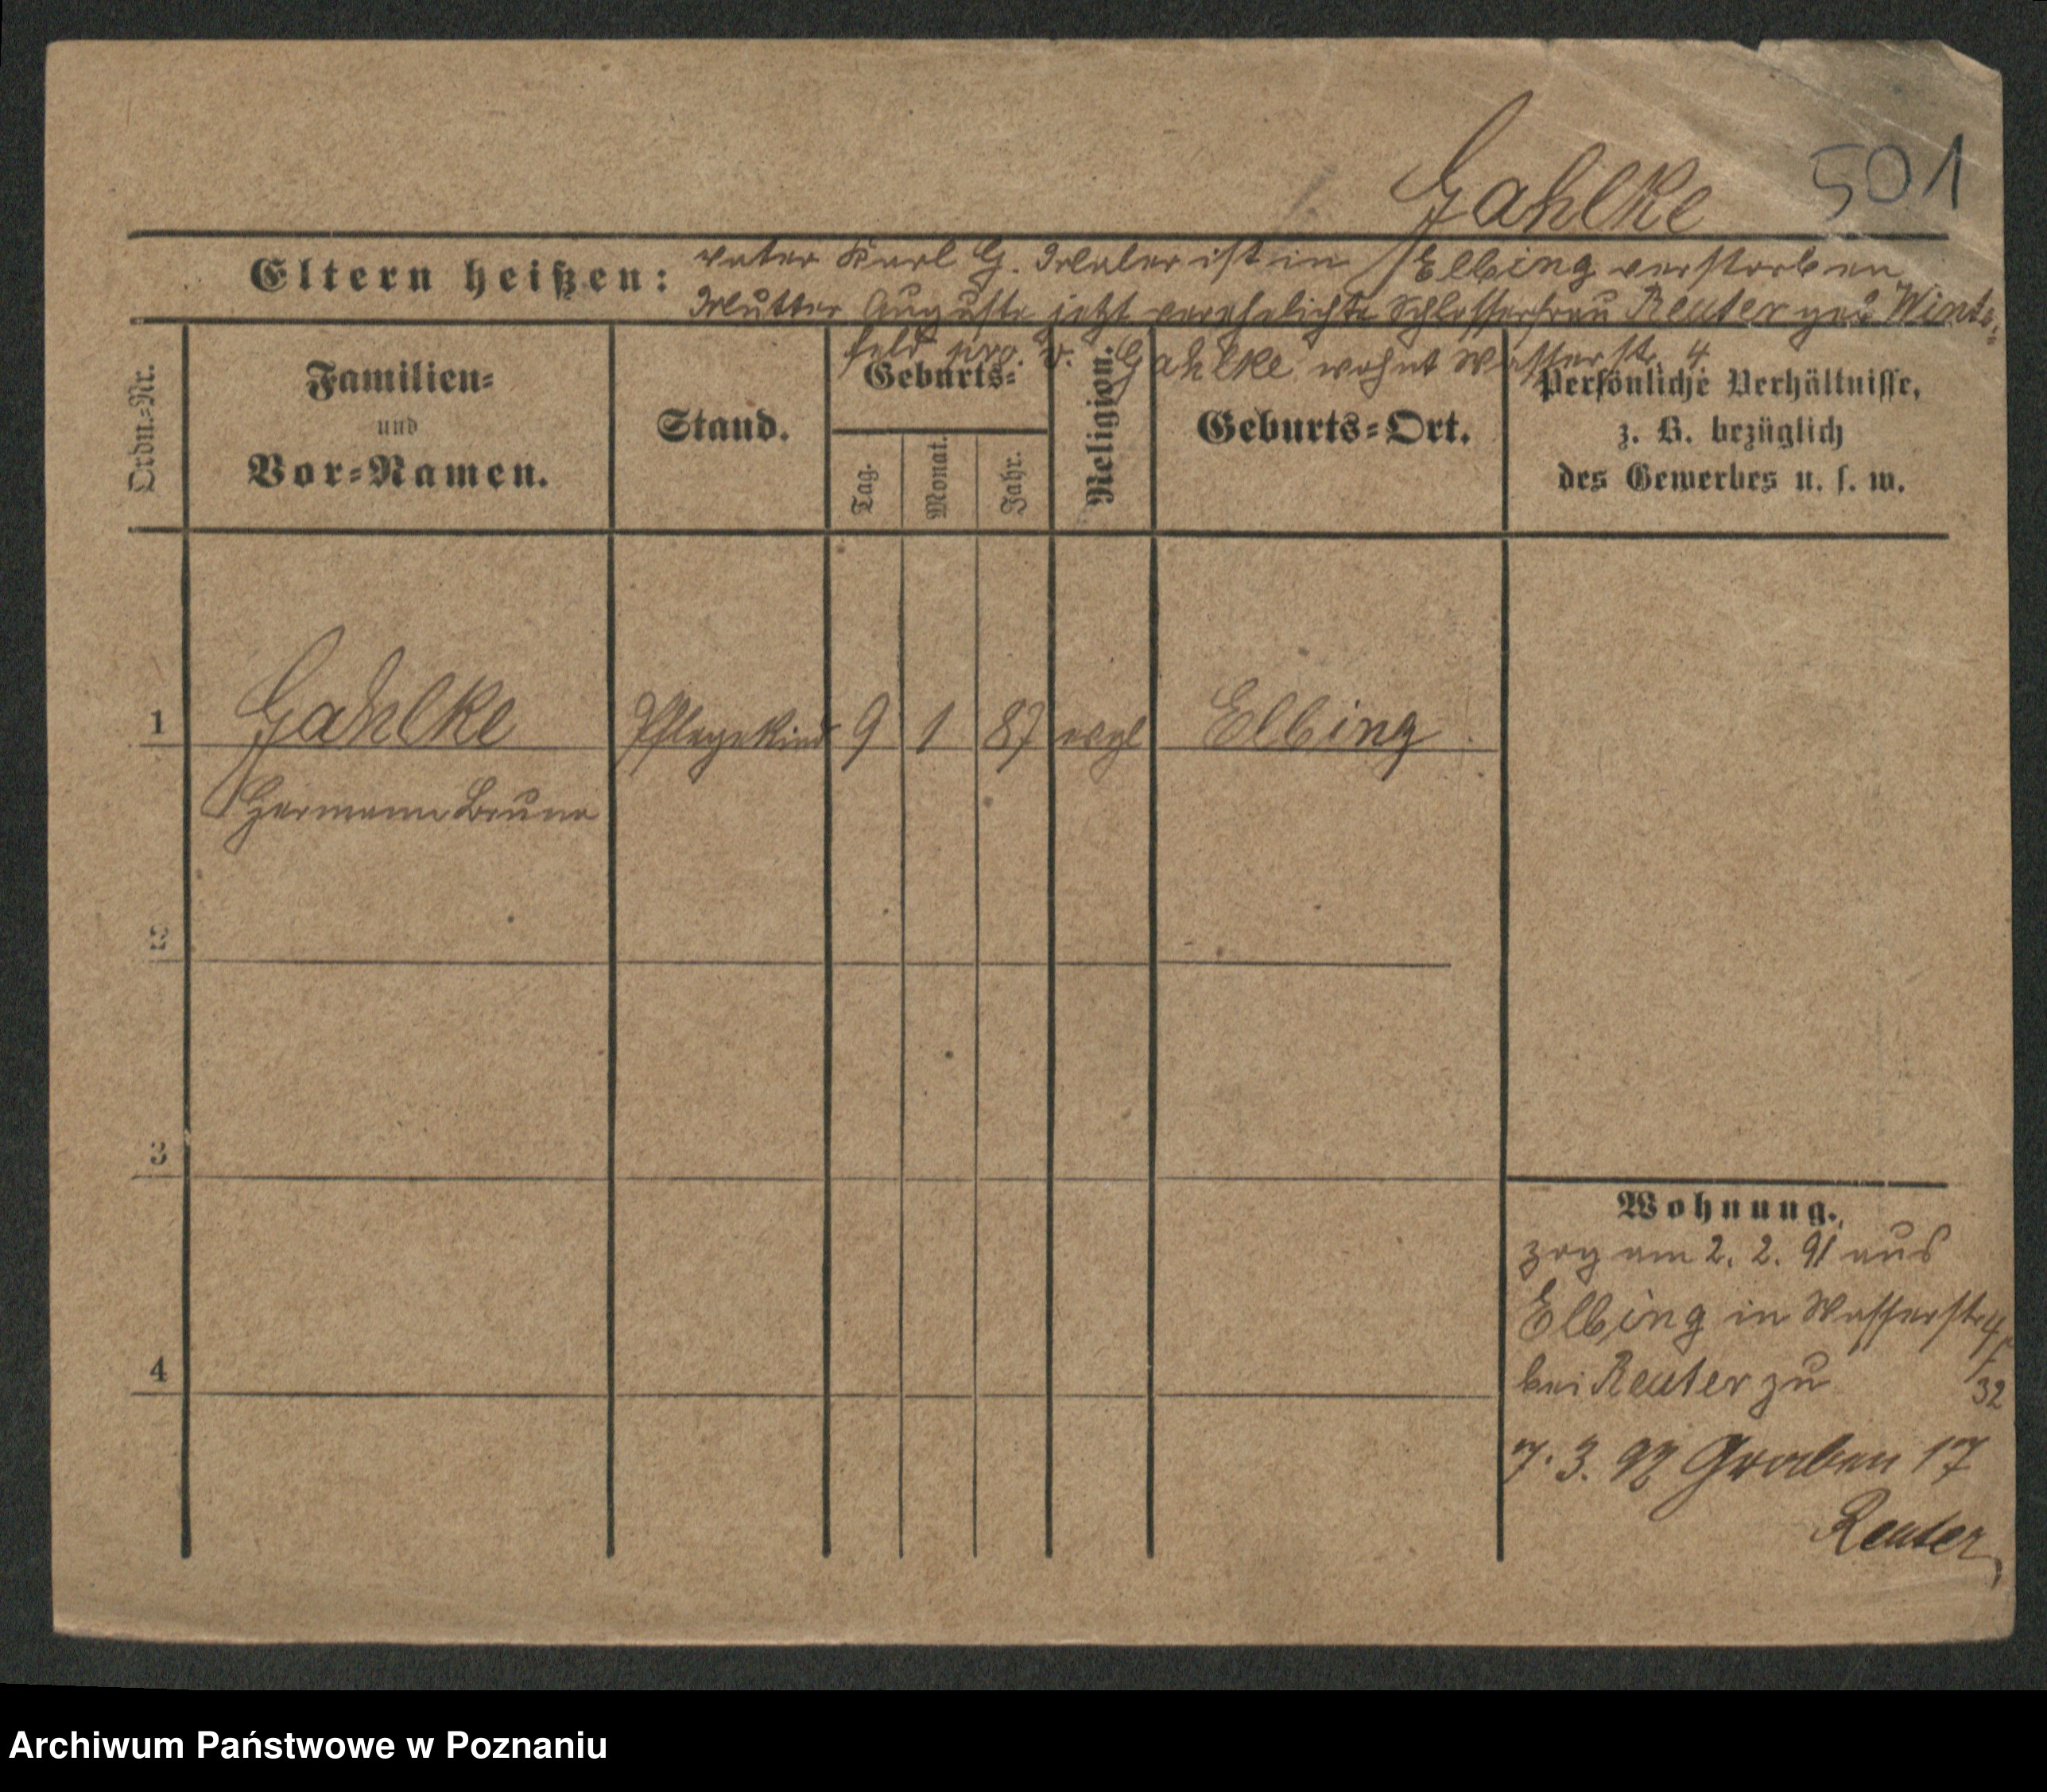 Gahlke 501
Eltern heißen:
Vater Karl G. Maler ist in Elbing verstorben
Mutter Auguste jetzt verehelichte Schlosserfrau Reuter geb Winter=
feld pro. v. Gahlke wohnt Wasserstr. 4.
Ordn.=Nr.
Familien=
und
Vor=Namen.
Stand.
Geburts=
Tag.
Monat.
Jahr.
Religion.
Geburts=Ort.
Persönliche Verhältnisse,
z. B. bezüglich
des Gewerbes u. s. w.
1 Gahlke Pflegekind 9 1 87 evgl Elbing
Hermann Bruno
2
3
4
Wohnung.
zog am 2. 2. 91 aus
Elbing in Wasserstr 4
bei Reuter zu
32
7. 3. 92 Graben 17
Reuter
Archiwum Państwowe w Poznaniu